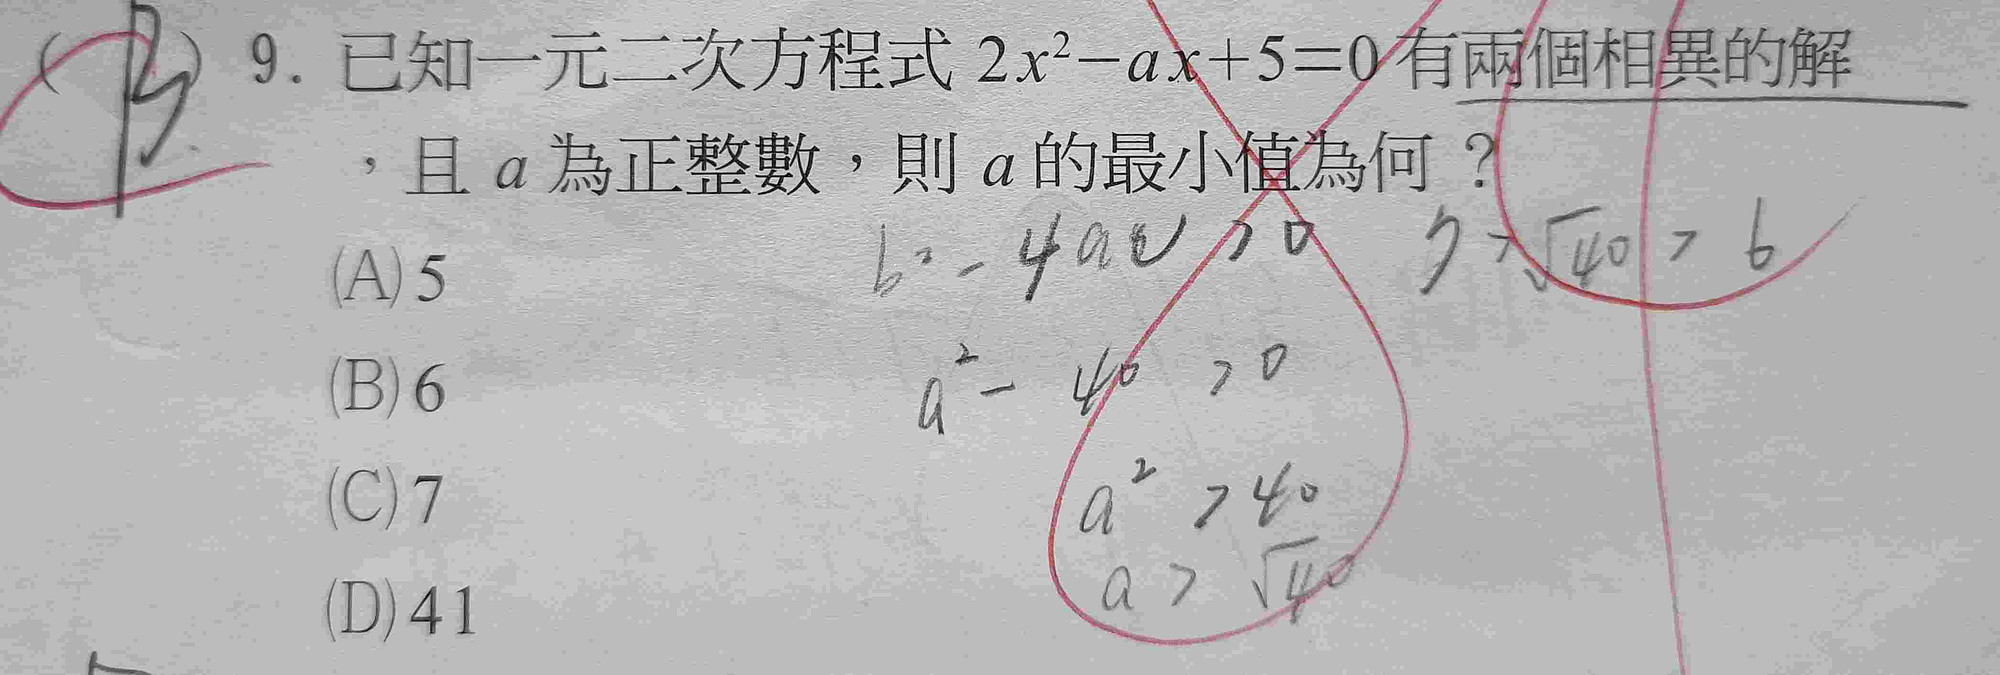 (B) 9. 已知一元二次方程式 2x²−ax+5=0 有兩個相異的解
，且 a 為正整數，則 a 的最小值為何？
b² - 4ac > 0 7 > √40 > 6
(A) 5
a² - 40 > 0
(B) 6
a² > 40
(C) 7
a > √40
(D) 41